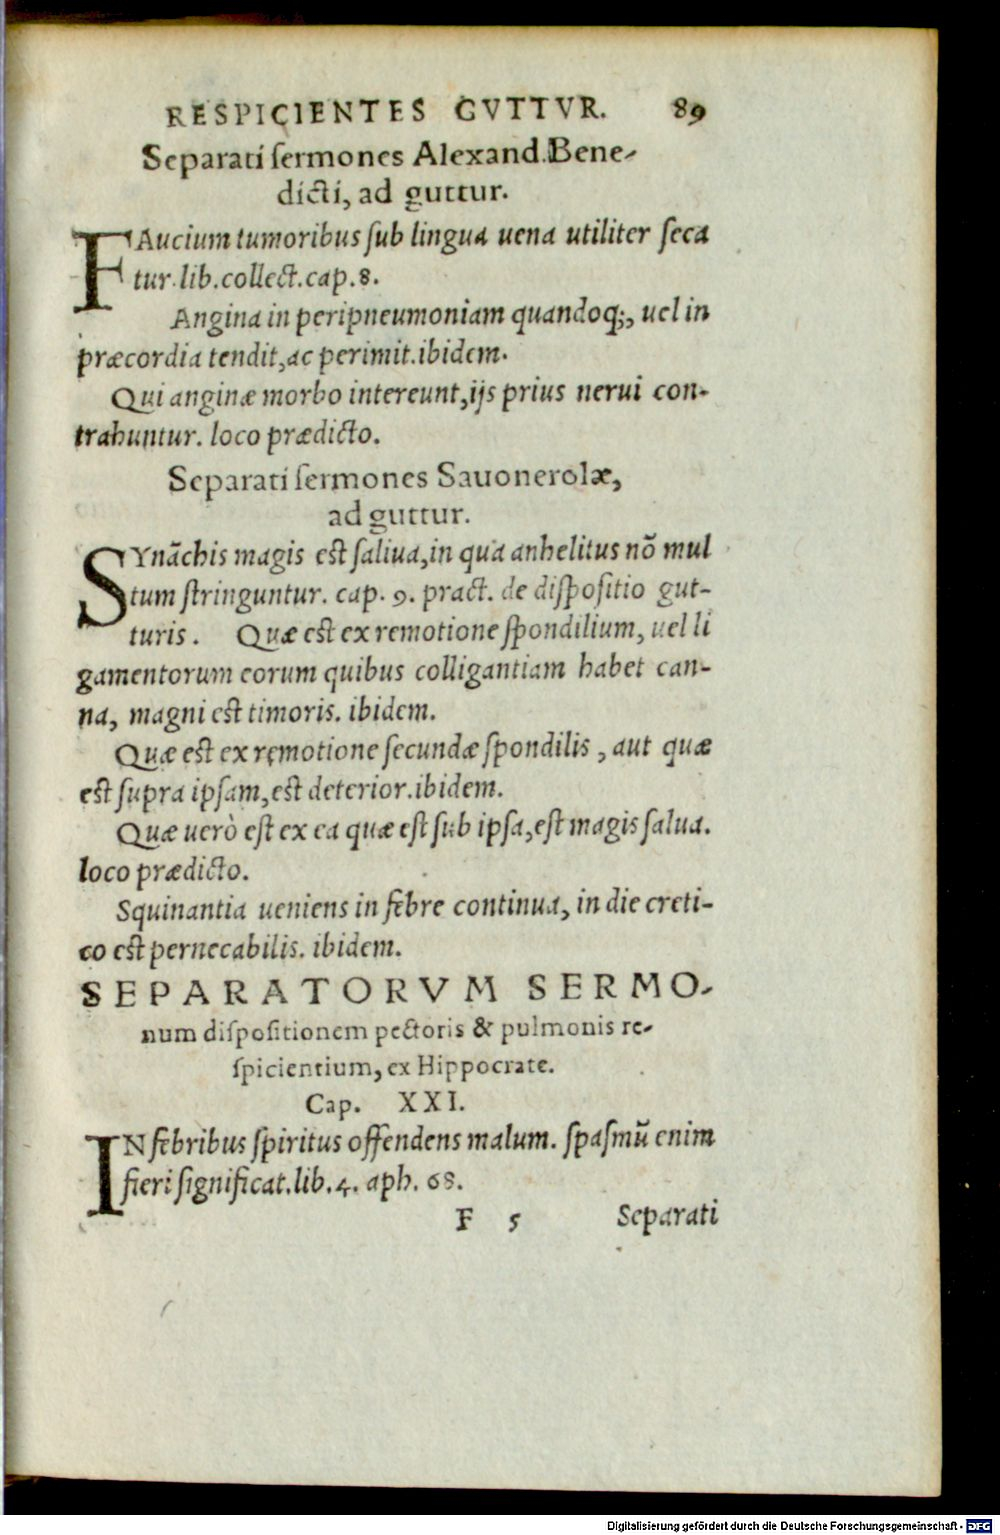 RESPICIENTES GVTTVR. 89
Separati sermones Alexand. Bene-
dicti, ad guttur.
FAucium tumoribus sub lingua uena utiliter seca
tur. lib. collect. cap. 8.
Angina in peripneumoniam quandoq;, uel in
præcordia tendit, ac perimit. ibidem.
Qui anginæ morbo intereunt, ijs prius nerui con-
trahuntur. loco prædicto.
Separati sermones Sauonerolæ,
ad guttur.
SYnāchis magis est saliua, in qua anhelitus nō mul
tum stringuntur. cap. 9. pract. de dispositio gut-
turis. Quæ est ex remotione spondilium, uel li
gamentorum eorum quibus colligantiam habet can-
na, magni est timoris. ibidem.
Quæ est ex remotione secundæ spondilis, aut quæ
est supra ipsam, est deterior. ibidem.
Quæ uerò est ex ea quæ est sub ipsa, est magis salua.
loco prædicto.
Squinantia ueniens in febre continua, in die creti-
co est pernecabilis. ibidem.
SEPARATORVM SERMO-
num dispositionem pectoris & pulmonis re-
spicientium, ex Hippocrate.
Cap. XXI.
IN febribus spiritus offendens malum. spasmū enim
fieri significat. lib. 4. aph. 68.
F 5 Separati
Digitalisierung gefördert durch die Deutsche Forschungsgemeinschaft - DFG